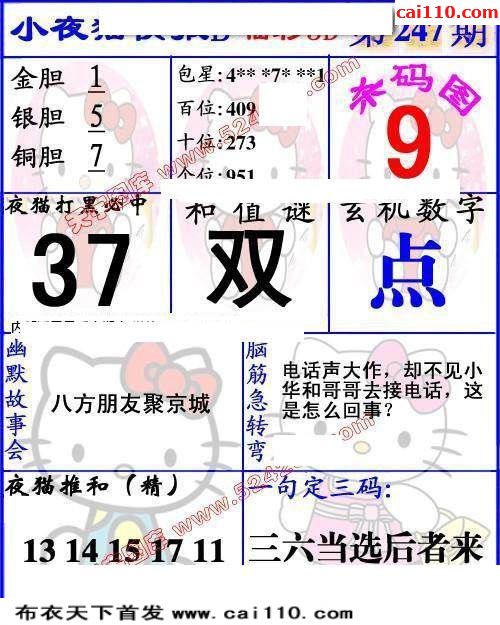 cai110.com
小夜猫
第247期
金胆 1
银胆 5
铜胆 7
包星:4** *7* **1
百位:409
十位:273
个位:951
杀码图
9
夜猫打黑必中
37
和值谜
双
玄机数字
点
幽默故事会
八方朋友聚京城
脑筋急转弯
电话声大作，却不见小
华和哥哥去接电话，这
是怎么回事？
夜猫推和（精）
13 14 15 17 11
一句定三码:
三六当选后者来
布衣天下首发 www.cai110.com